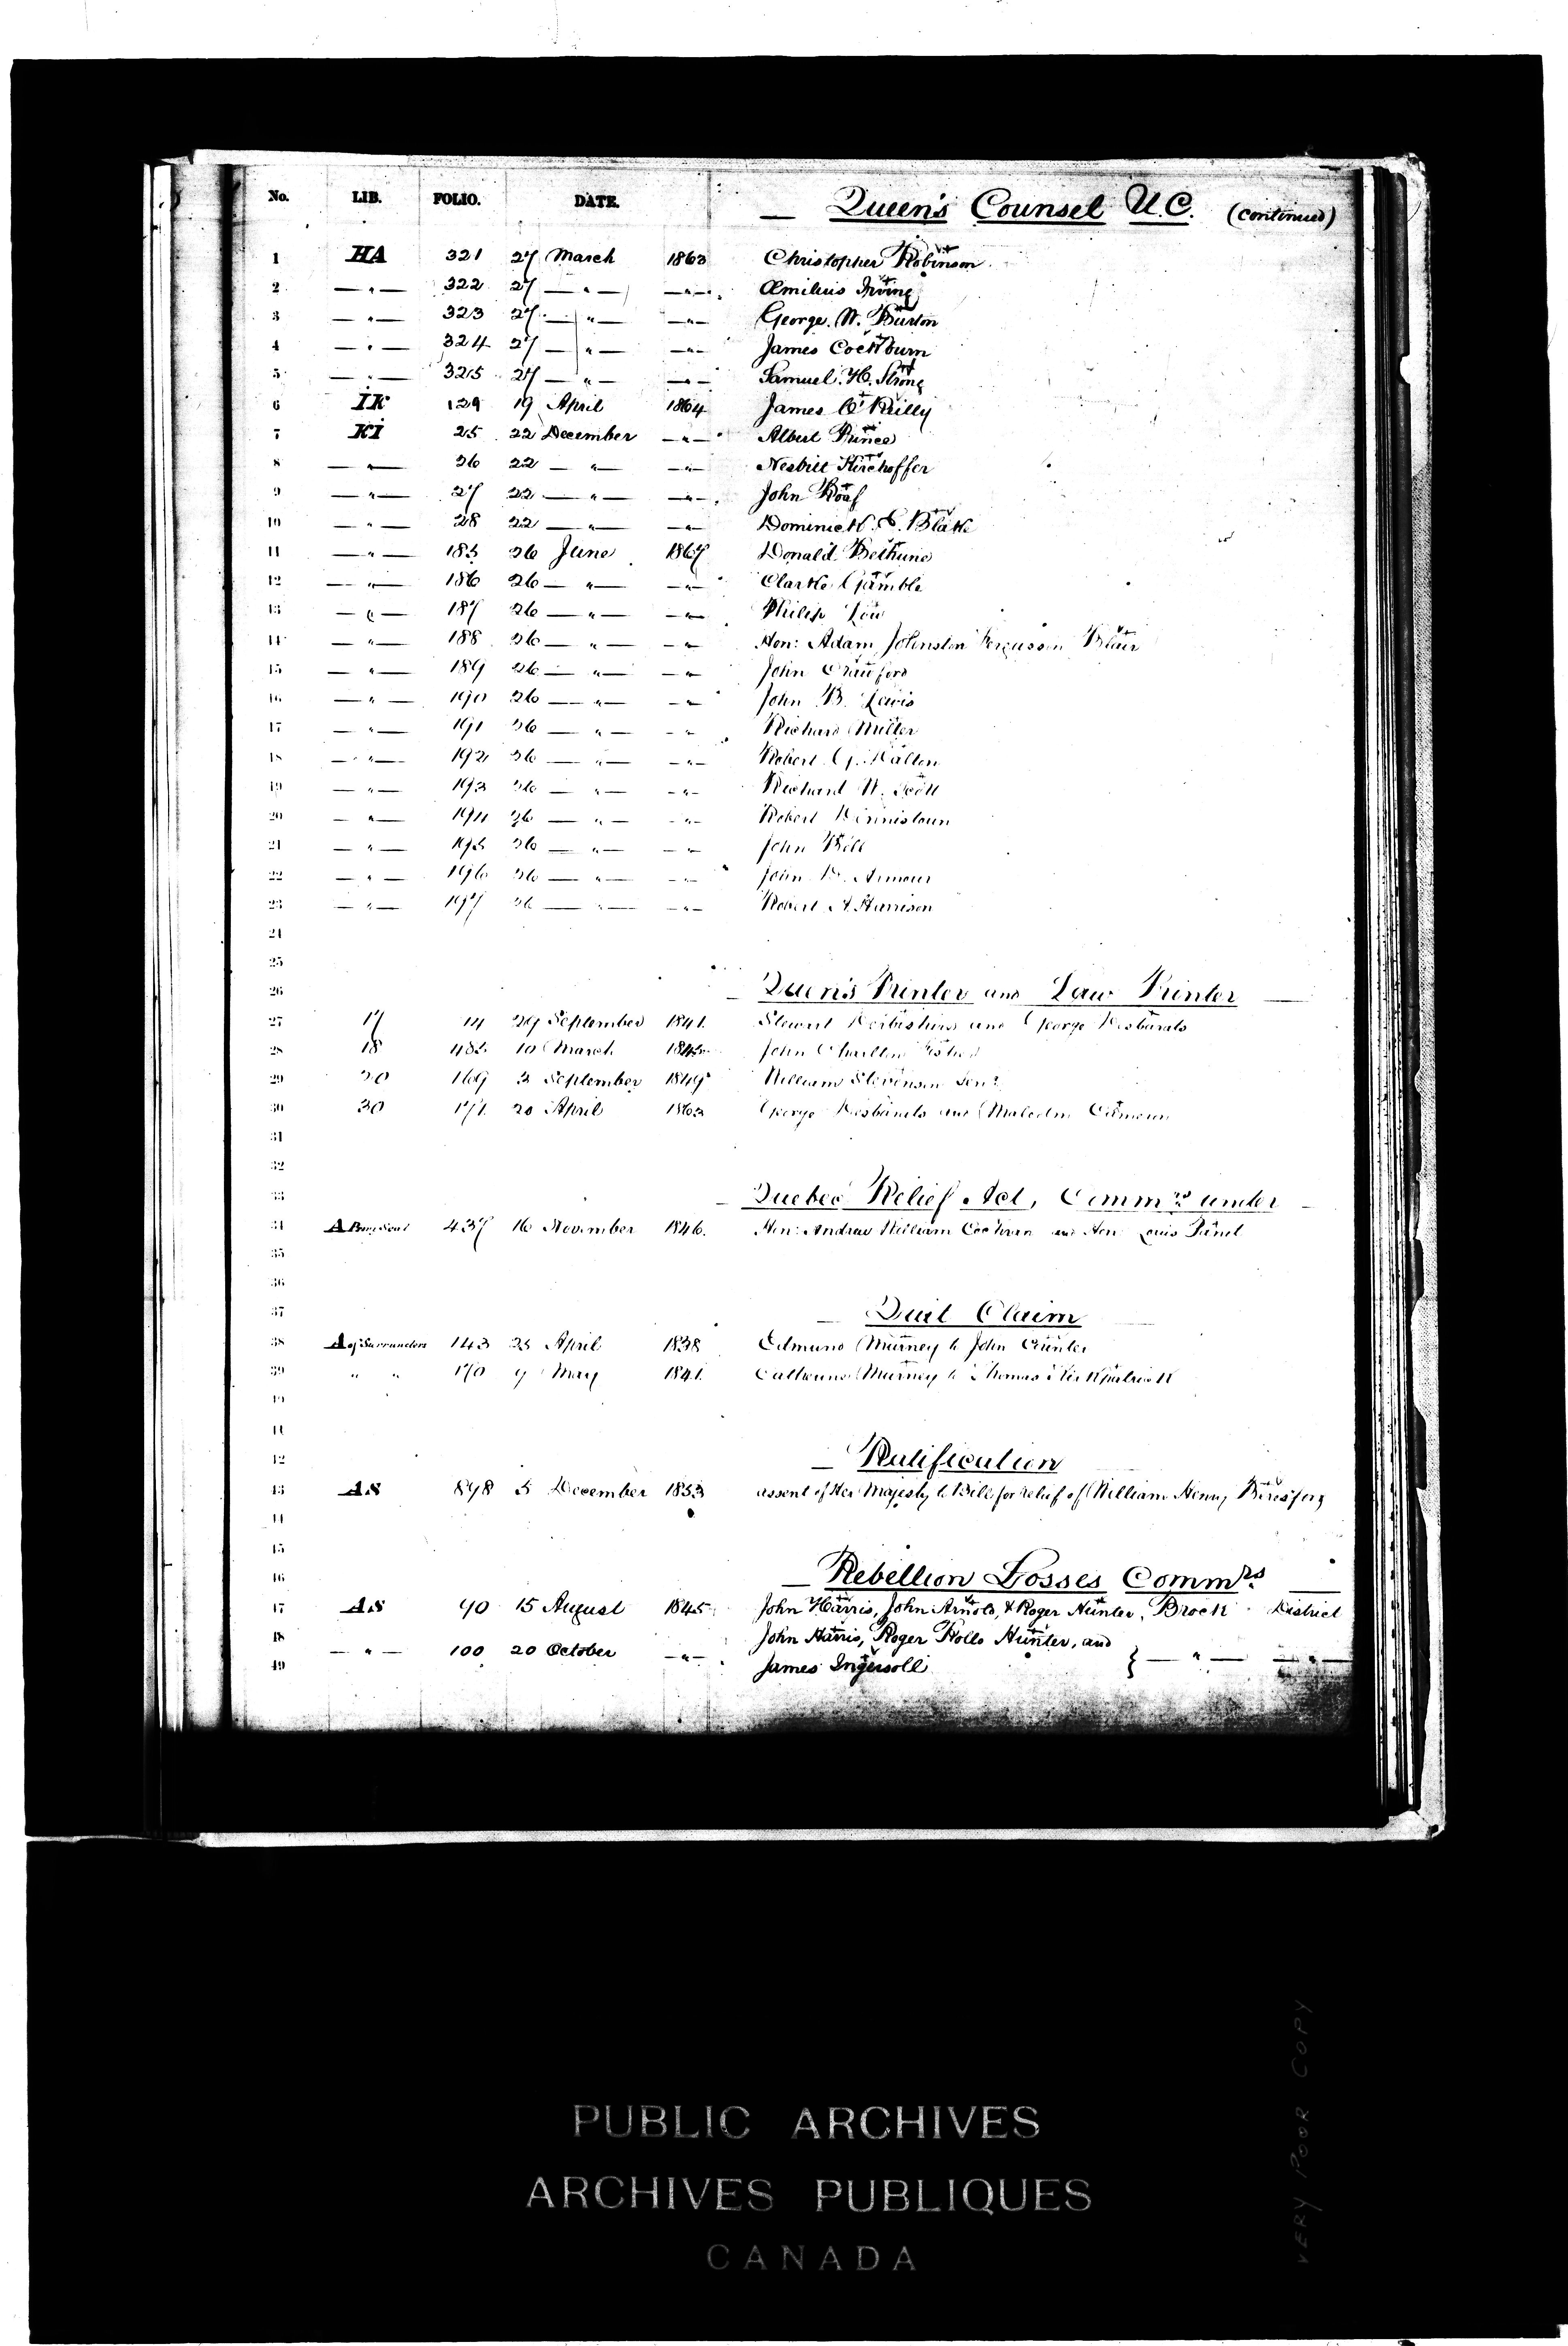 No. LIB. FOLIO. DATE. Queen's Counsel U.C. (continued)
1 HA 321 27 March 1863 Christopher Robinson
2 — " — 322 27 — " — — " — Æmilius Irving
3 — " — 323 27 — " — — " — George. W. Burton
4 — " — 324 27 — " — — " — James Cockburn
5 — " — 325 27 — " — — " — Samuel. H. Strong
6 IK 129 19 April 1864 James O'Reilly
7 KI 25 22 December — " — Albert Prince
8 — " — 26 22 — " — — " — Nesbitt Kirchoffer
9 — " — 27 22 — " — — " — John Roaf
10 — " — 28 22 — " — — " — Dominick. E. Blake
11 — " — 185 26 June 1867 Donald Bethune
12 — " — 186 26 — " — — " — Clarke Gamble
13 — " — 187 26 — " — — " — Philip Low
14 — " — 188 26 — " — — " — Hon: Adam Johnston Fergusson Blair
15 — " — 189 26 — " — — " — John Crawford
16 — " — 190 26 — " — — " — John B. Lewis
17 — " — 191 26 — " — — " — Richard Miller
18 — " — 192 26 — " — — " — Robert G. Dalton
19 — " — 193 26 — " — — " — Richard W. Scott
20 — " — 194 26 — " — — " — Robert Dennistoun
21 — " — 195 26 — " — — " — John Bell
22 — " — 196 26 — " — — " — John D. Armour
23 — " — 197 26 — " — — " — Robert A. Harrison
24
25
26 Queen's Printer and Law Printer
27 17 14 29 September 1841. Stewart Derbishire and George Desbarats
28 18 485 10 March John Charlton Fisher
29 20 169 3 September 1849 William Stevenson Senr
30 30 171 20 April 1863 George Desbarats and Malcolm Cameron
31
32
33 Quebec Relief Act, Commrs under
34 A Privy Seal 437 16 November 1846. Hon: Andrew William Cochran and Hon: Louis Panet
35
36
37 Quit Claim
38 A of Surrenders 143 25 April 1838 Edmund Murney to John Counter
39 " " 170 7 May 1841. Catherine Murney to Thomas Kirkpatrick
40
41
42 Ratification
43 AS 898 5 December 1853 assent of Her Majesty to Bill for relief of William Henry Beresford
44
45
46 Rebellion Losses Commrs
47 AS 90 15 August 1845 John Harris, John Arnold, & Roger Hunter, Brock District
48 — " — 100 20 October — " — John Harris, Roger Rollo Hunter, and } — " — — " —
49 James Ingersoll
PUBLIC ARCHIVES
ARCHIVES PUBLIQUES
CANADA
VERY POOR COPY